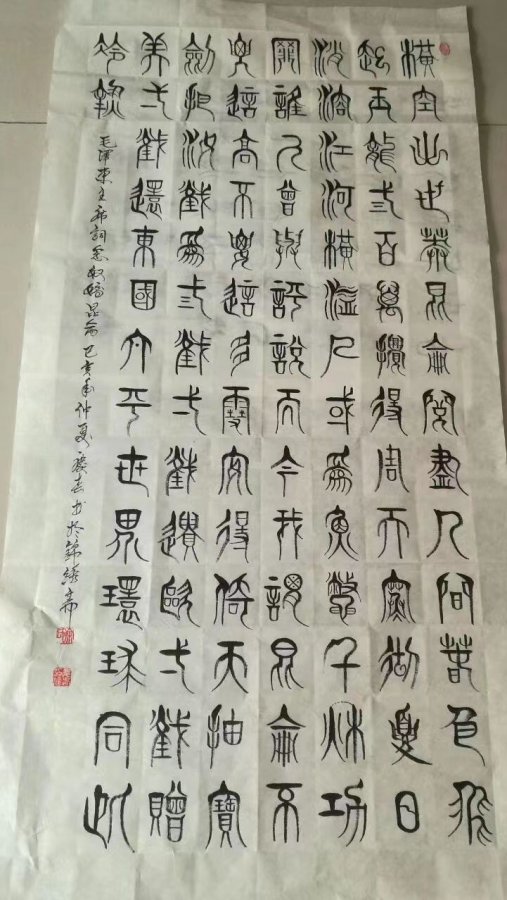 橫空出世莽昆侖閱盡人間春色飛
起玉龍弎百萬攪得周天寒徹夏日
消溶江河橫溢人或為魚鱉千秋功
罪誰人曾與評說而今我謂昆侖不
要這高不要這多雪安得倚天抽寶
劍把汝裁為弎截弌截遺歐弌截贈
美弌截還東國太平世界環球同此
冷熱
毛澤東主席詞念奴嬌昆侖己亥年仲夏书於錦綉斋